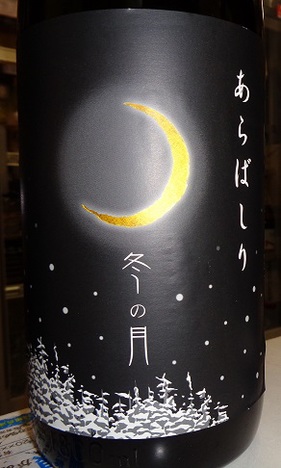 あらばしり
冬の月